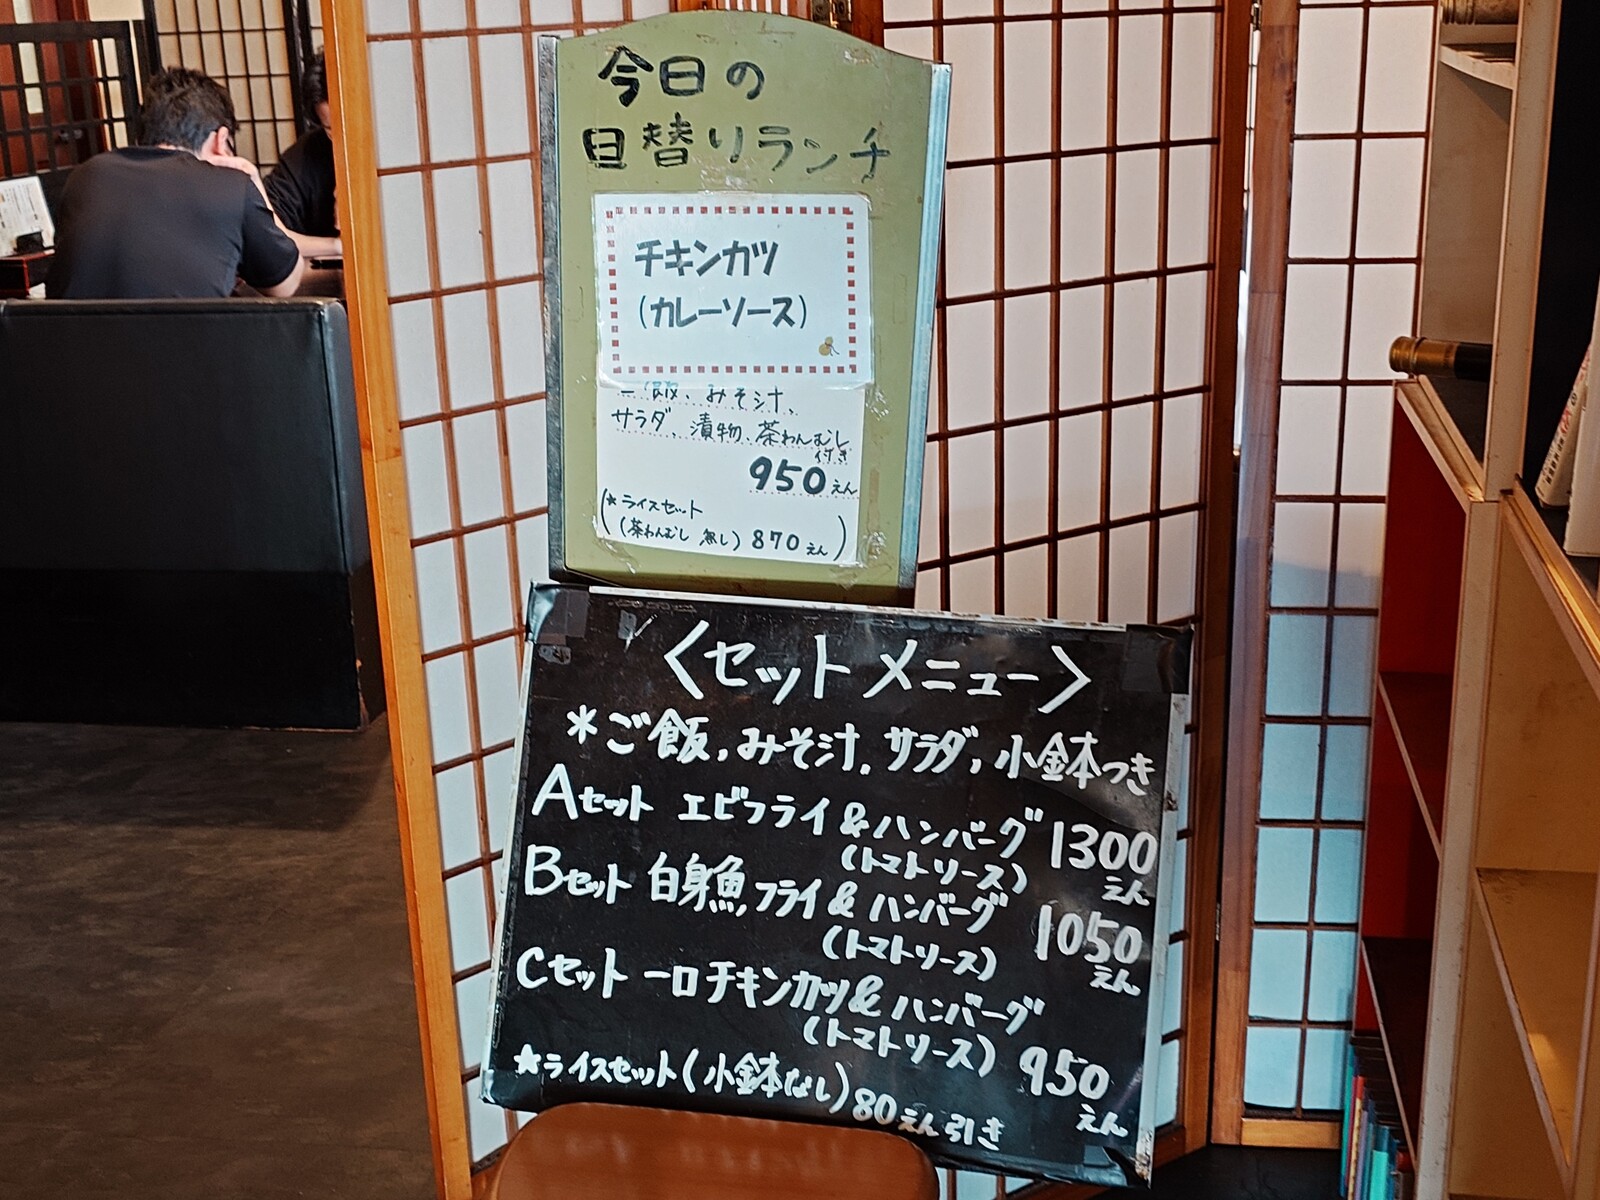 今日の
日替りランチ
チキンカツ
(カレーソース)
ご飯、みそ汁、
サラダ、漬物、茶わんむし
付き
950えん
(*ライスセット
(茶わんむし 無し) 870えん)
〈セットメニュー〉
*ご飯、みそ汁、サラダ、小鉢つき
Aセット エビフライ&ハンバーグ 1300
(トマトソース) えん
Bセット 白身魚フライ&ハンバーグ 1050
(トマトソース) えん
Cセット 一口チキンカツ&ハンバーグ
(トマトソース) 950
えん
★ライスセット(小鉢なし)80えん引き